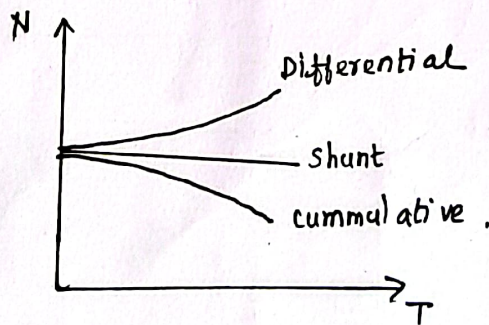 N
Differential
Shunt
cummulative.
T